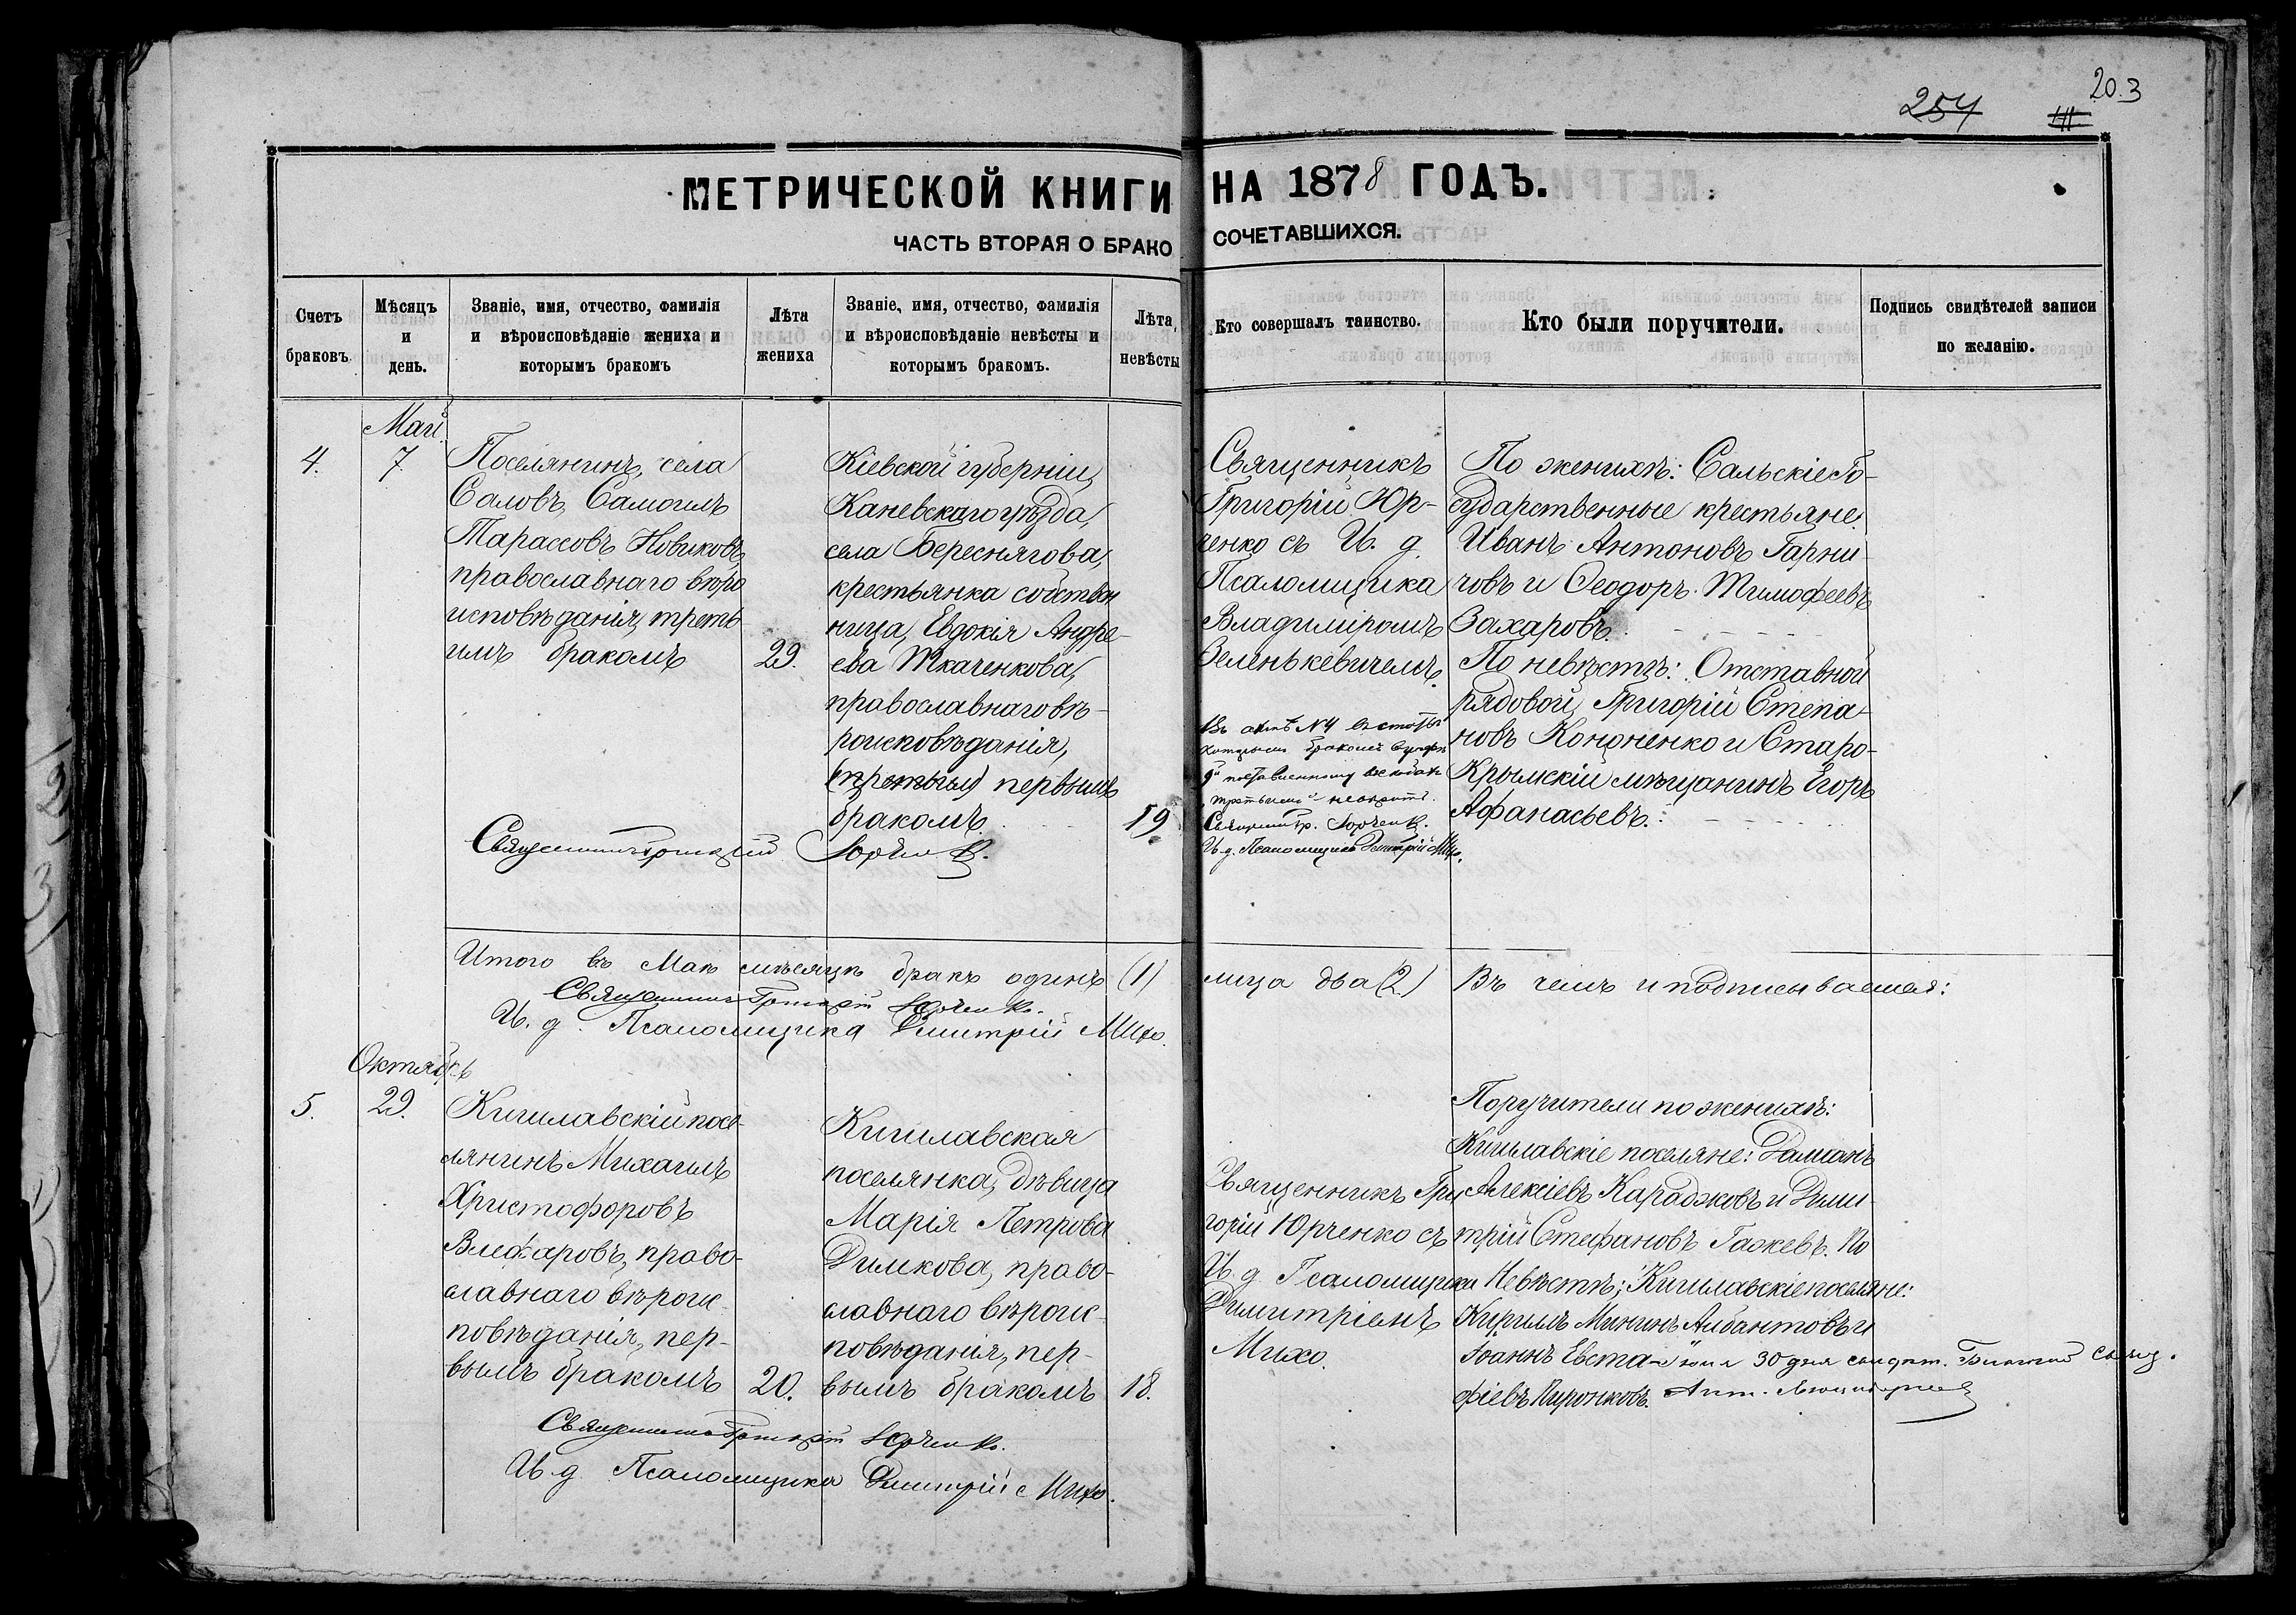 203
257
МЕТРИЧЕСКОЙ КНИГИ НА 1878 ГОДЪ.
ЧАСТЬ ВТОРАЯ О БРАКОСОЧЕТАВШИХСЯ.
Счетъ браковъ.
Мѣсяцъ и день.
Званіе, имя, отчество, фамилія
и вѣроисповѣданіе жениха и
которымъ бракомъ
Лѣта жениха
Званіе, имя, отчество, фамилія
и вѣроисповѣданіе невѣсты и
которымъ бракомъ.
Лѣта невѣсты
Кто совершалъ таинство.
Кто были поручители.
Подпись свидѣтелей записи
по желанію.
Май
4.
7
Поселянинъ, села
Саловъ, Самоилъ
Тарассовъ Новиковъ,
православнаго вѣро
исповѣданія, треть
имъ бракомъ
29.
Кіевской губерніи,
Каневскаго уѣзда,
села Береснягова,
крестьянка собствен
ница, Евдокія Андре-
ева Ткаченкова,
православнаго вѣ-
роисповѣданія,
(третьим) первымъ
бракомъ
19
Священникъ Григорій Юрченко.
Священникъ
Григорій Юр-
ченко съ И. д.
Псаломщика
Владиміромъ
Зенькевичемъ.
Въ актѣ N4
бракомъ
третьимъ
Священникъ Гр. Юрченко.
И. д. Псаломщика Дмитрій Михо.
По женихѣ: Сальскіе Го-
сударственные крестьяне
Иванъ Антоновъ Гарни
човъ и Ѳеодоръ Тимофеевъ
Захаровъ.
По невѣстѣ: Отставной
рядовой, Григорій Степа-
новъ Кононенко и Старо-
Крымскій мѣщанинъ Егоръ
Афанасьевъ.
Итого въ Маѣ мѣсяцѣ бракъ одинъ (1) лица два (2) Въ чемъ и подписываемся:
Священникъ Григорій Юрченко.
И. д. Псаломщика Димитрій Михо.
Октябрь
5.
29.
Кишлавскій посе-
лянинъ Михаилъ
Христофоровъ
право-
славнаго вѣроис-
повѣданія, пер-
вымъ бракомъ
20.
Кишлавская
поселянка, дѣвица
Марія Петрова
Димкова, право-
славнаго вѣроис-
повѣданія, пер-
вымъ бракомъ
18.
Священникъ Григорій Юрченко.
И. д. Псаломщика Димитрій Михо.
Священникъ Гри
горій Юрченко съ
И. д. Псаломщика
Димитріемъ
Михо.
Поручители по женихѣ:
Кишлавскіе поселяне: Даміанъ
Алексіевъ Караджовъ и Дими-
трій Стефановъ Гажевъ. По
Невѣстѣ: Кишлавскіе поселяне:
Кирилъ Мининъ Аивантовъ и
Іоаннъ Евста-
фіевъ Пиронковъ.
30 дня